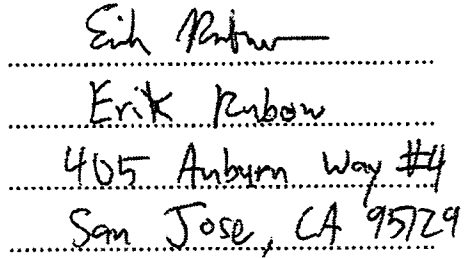 Erik Rubow
Erik Rubow
405 Auburn Way #4
San Jose, CA 95129